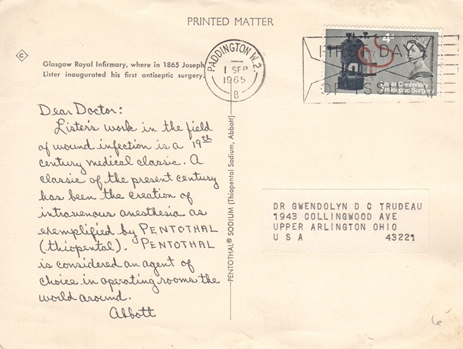 PRINTED MATTER
C
Glasgow Royal Infirmary, where in 1865 Joseph
Lister inaugurated his first antiseptic surgery.
PADDINGTON W.2.
1 SEP
1965
B
FIRST DAY
OF ISSUE
4d
Lister Centenary
Antiseptic Surgery
Dear Doctor:
Lister's work in the field
of wound infection is a 19th
century medical classic. A
classic of the present century
has been the creation of
intravenous anesthesia as
exemplified by PENTOTHAL
(thiopental). PENTOTHAL
is considered an agent of
choice in operating rooms the
world around.
Abbott
PENTOTHAL® SODIUM (Thiopental Sodium, Abbott)
DR GWENDOLYN D C TRUDEAU
1943 COLLINGWOOD AVE
UPPER ARLINGTON OHIO
U S A 43221
6